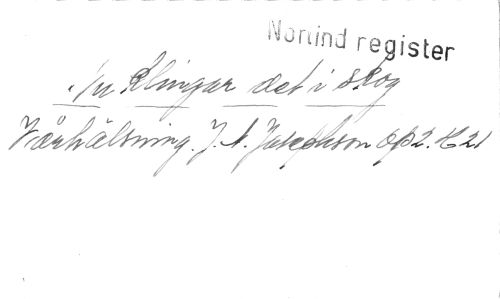 Norlind register
Nu klingar det i skog
Vårhälsning. J. A. Josephson op 2. H 21